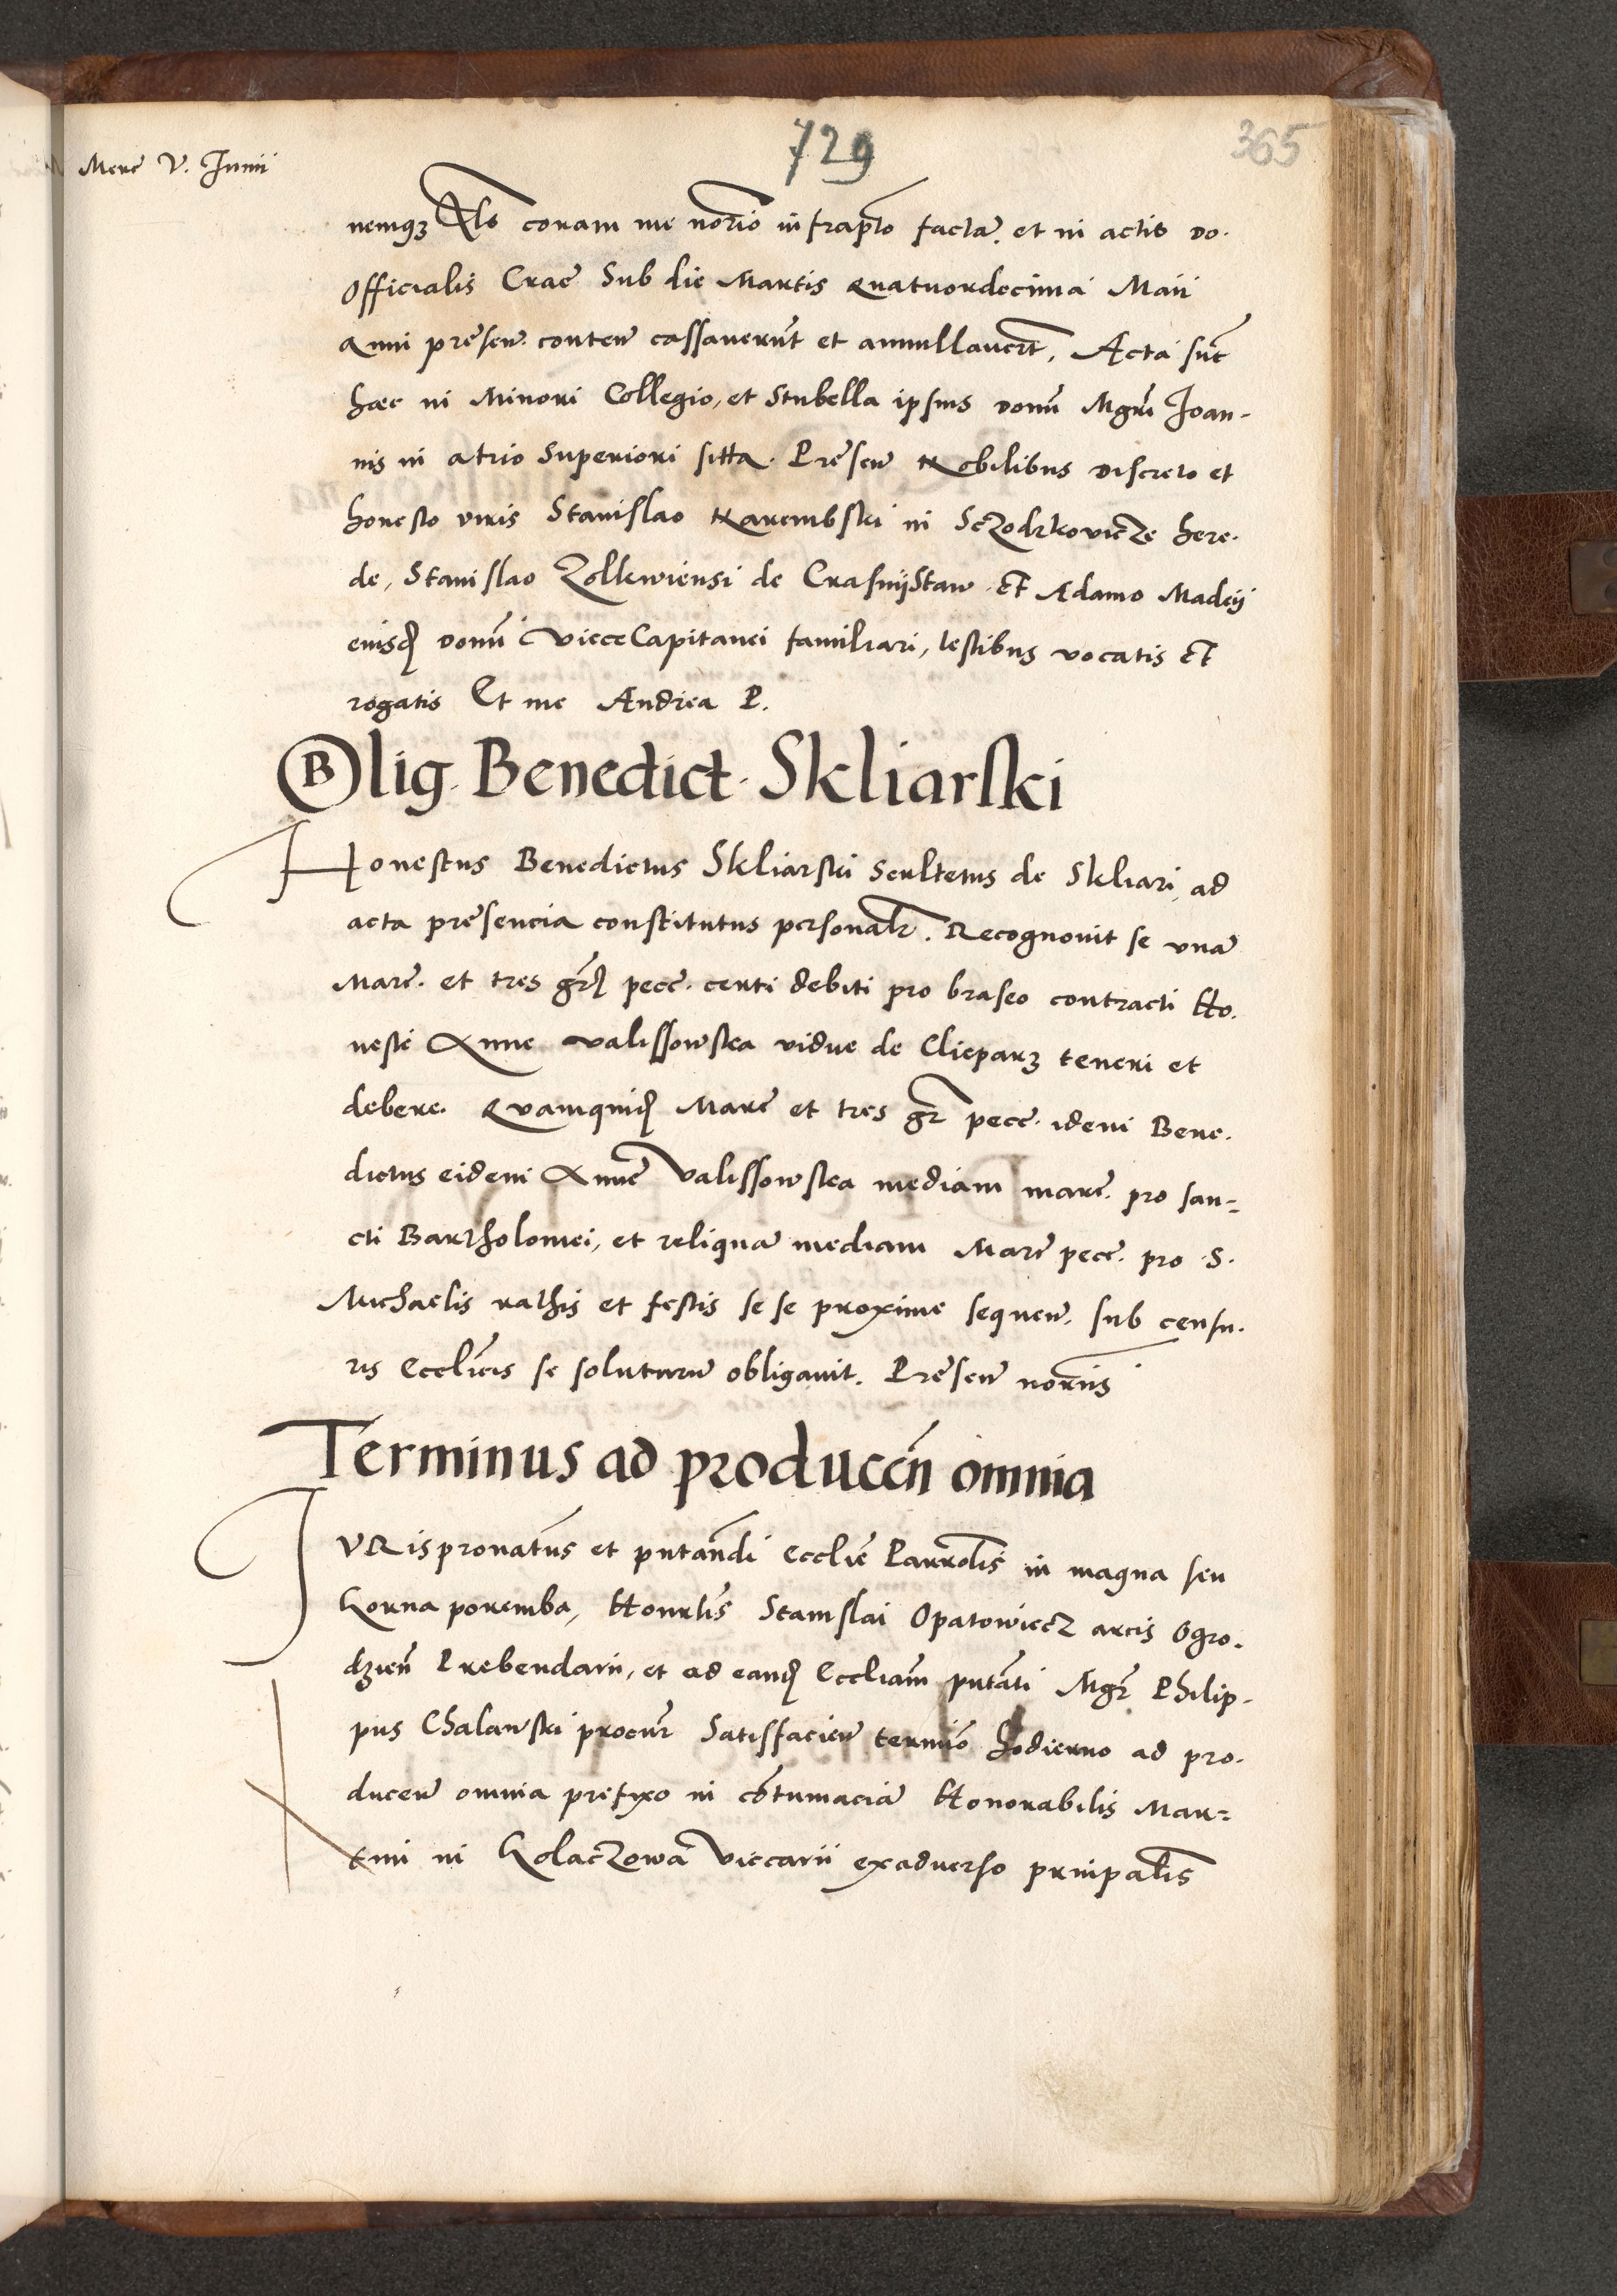 729
365
Merc V. Junii
nemqз Als coram me norio infrapto facta. et in actis do.
Officialis Crac Sub die Martis Quatuordecima Maii
Anni presen. conten cassaverunt et annullavert, Acta sunt
haec in Minori Collegio, et Stubella ipsius domi Mgri Joan-
nis in atrio Superiori sitta. Presen Nobilibus discreto et
honesto viris Stanislao Karembski in Sczodrkovicze here.
de, Stanislao Zolkwiensi de Crasniistaw et Adamo Madeii
eiusd domi ViceCapitanei familiari, testibus vocatis et
rogatis Et me Andrea P.
Oblig. Benedict. Skliarski
Honestus Benedictus Skliarski Scultetus de Skliari, ad
acta presencia constitutus personalr. Recognovit se una
Marc. et tres gr pecc. certi debiti pro braseo contracti Ho.
neste Anne Valissowska vidue de Clieparz teneri et
debere. Quamquid Marc et tres gr pecc. idem Bene.
dictus eidem Anne Valissowska mediam marc. pro san-
cti Bartholomei, et reliqua mediam Marc pecc. pro .S.
Michaelis rathis et festis se se proxime sequen. sub censu.
ris Ecclicis se soluturu obligavit. Presen noriis
Terminus ad producen omnia
JVRispronatus et pntandi ecclie Parrolis in magna seu
Gorna poremba, Honrlis Stanislai Opatowiecz arcis Ogro.
dzien Prebendarii, et ad eand Eccliam pntati Mgr Philip-
pus Chalawski procur Satisfacien termio hodierno ad pro.
ducen omnia prefixo in cotumacia Honorabilis Mar-
tini in Golaczowa Viccarii exadverso prnipalis